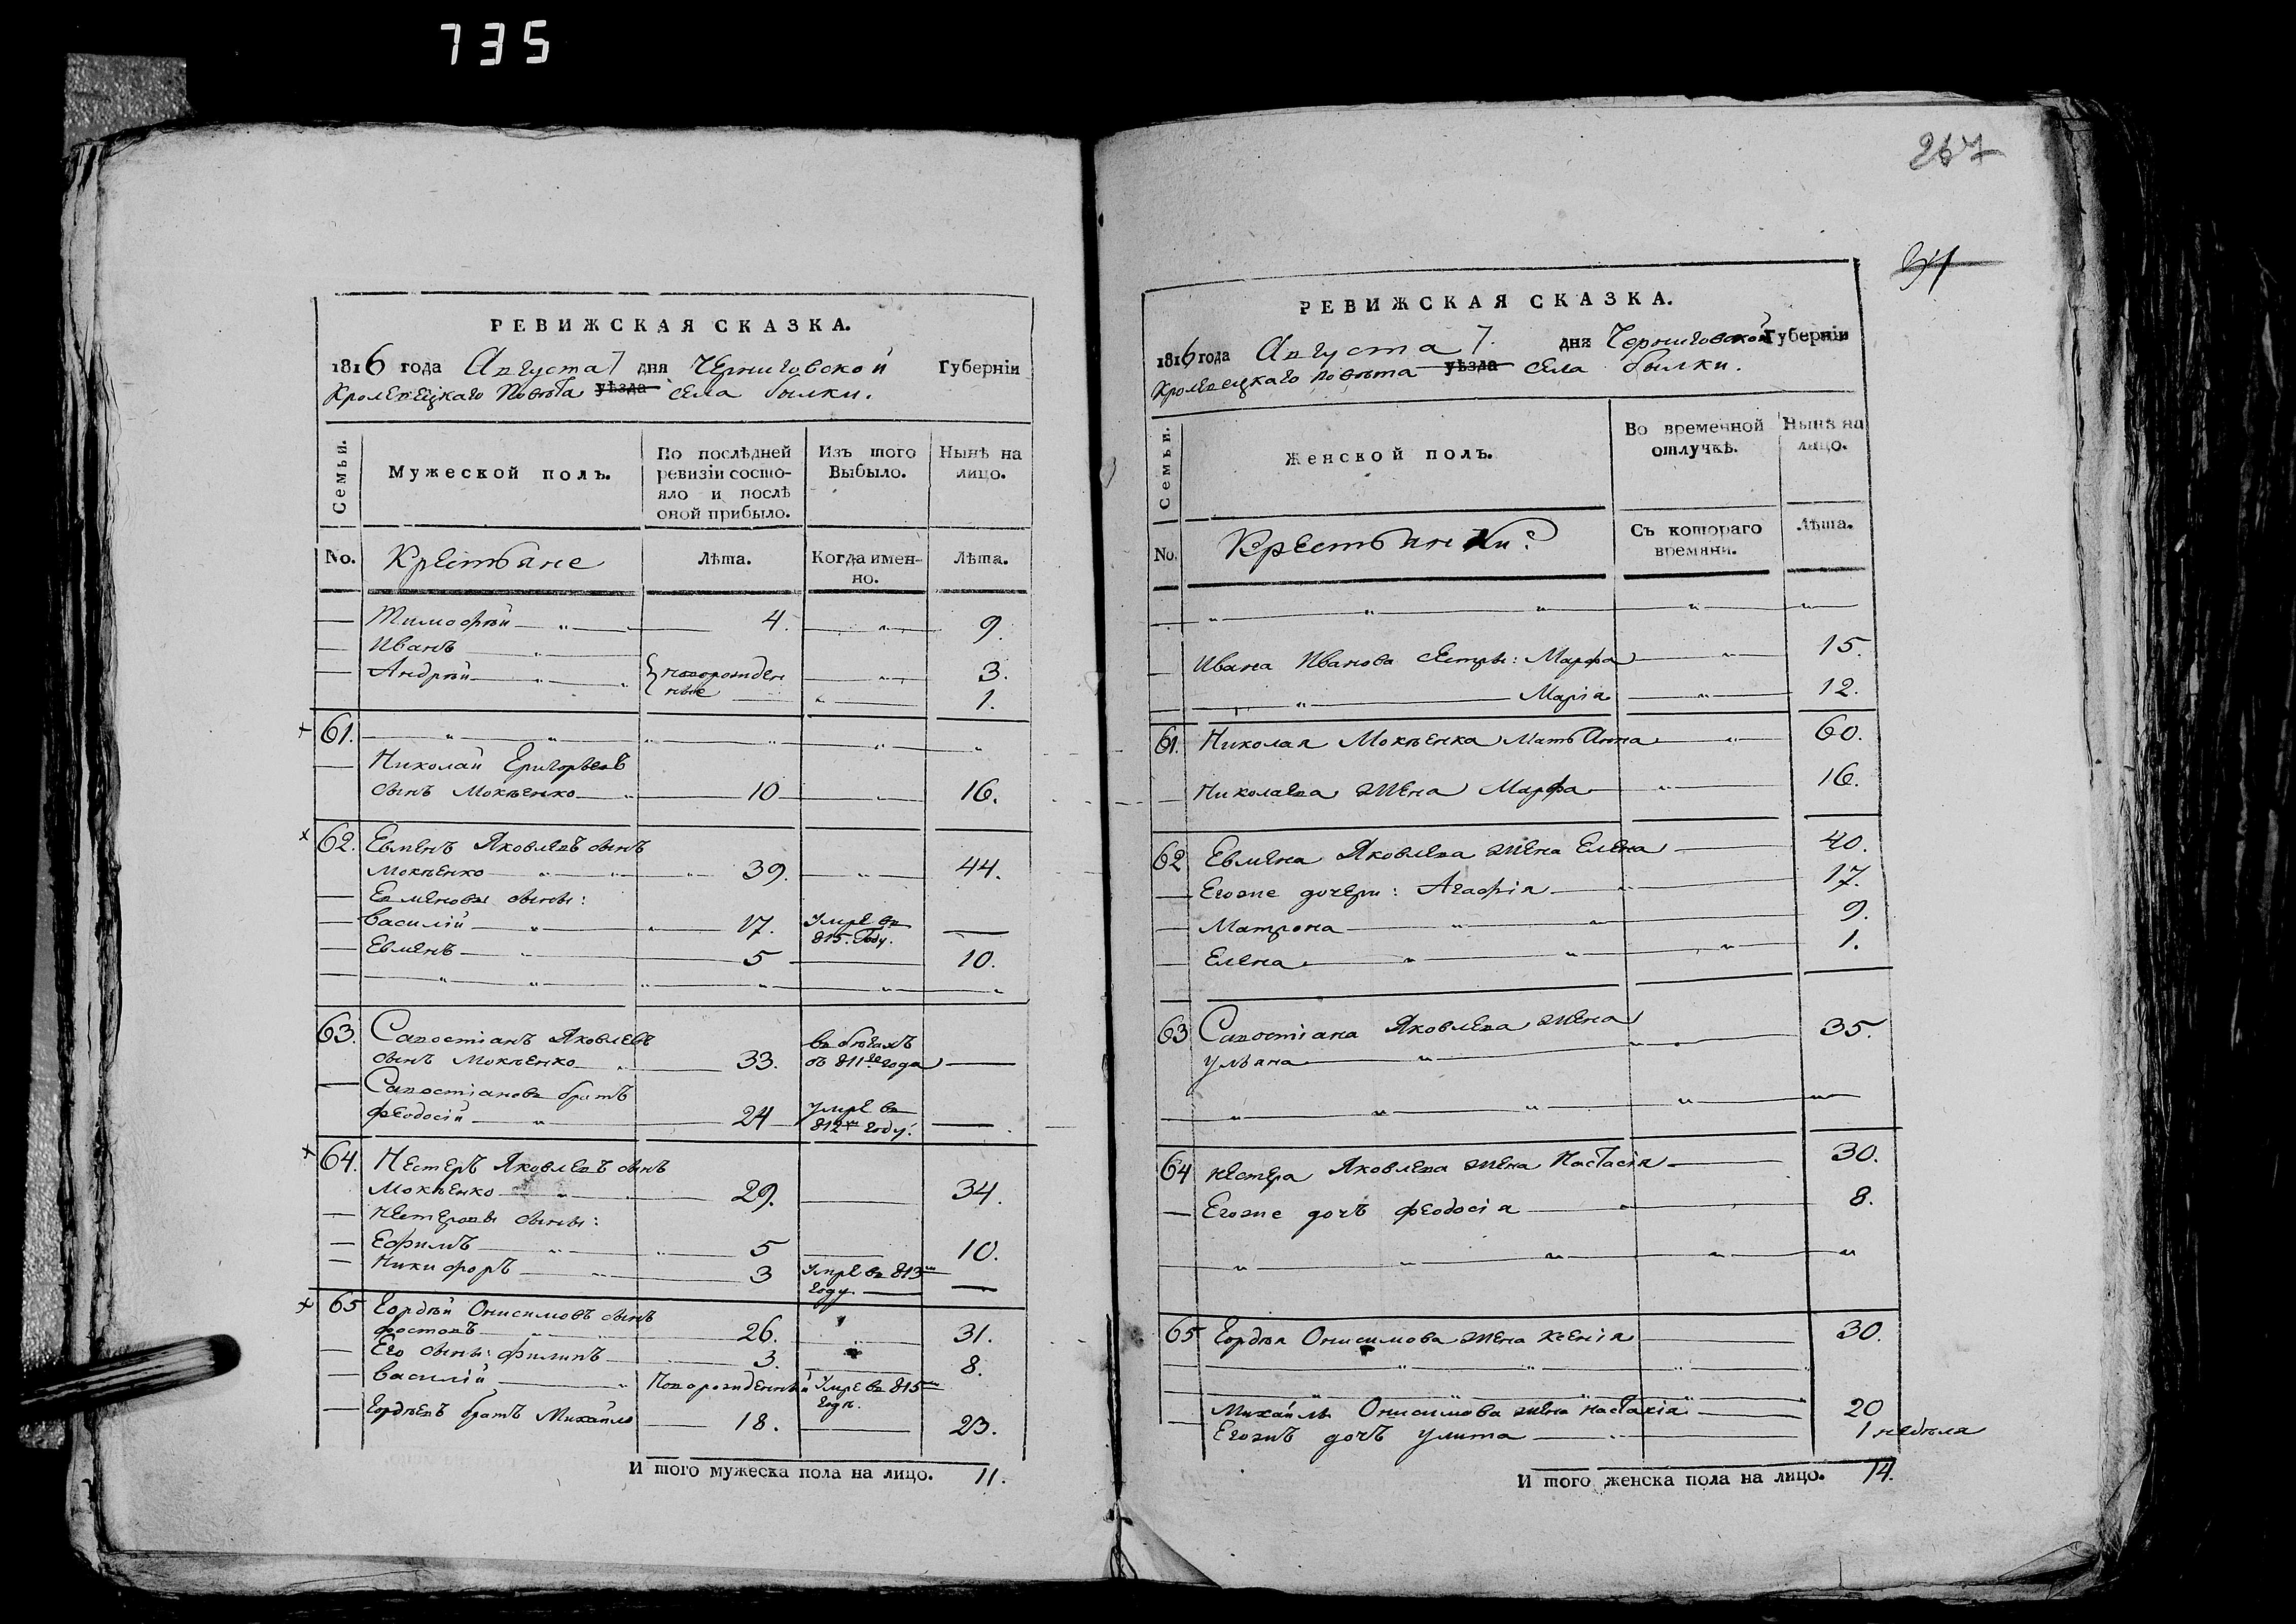 735
РЕВИЖСКАЯ СКАЗКА.
1816 года Августа 7 дня Черниговской Губерніи
Кролевецкаго Повѣта уѣзда села былки.
Семьи.
Мужеской полъ.
По послѣдней ревизіи состояло и послѣ оной прибыло.
Изъ того Выбыло.
Нынѣ на лицо.
No. Крестьяне Лѣта. Когда именно. Лѣта.
Тимофѣй 4. 9.
Иванъ 3.
Андрѣй новорожденные 1.
61.
Николай Григорьевъ
сынъ Мокѣенко 10 16.
62. Евменъ Яковлевъ сынъ
Мокѣенко 39. 44.
Евменовы сыны:
Василій 17. Умре въ 815. Году.
Евменъ 5 10.
63. Савостіанъ Яковлевъ
сынъ Мокѣенко 33. въ бѣгахъ съ 811го года
Савостіановъ братъ
Феодосій 24 Умре въ 812м году.
64. Нестеръ Яковлевъ сынъ
Мокѣенко 29. 34.
Нестеровы сыны:
Ефимъ 5 10.
Никифоръ 3 Умре въ 813м году.
65 Гордѣй Онисимовъ сынъ
Фостовъ 26. 31.
Его сыны: Филипъ 3. 8.
Василій Новорожденный Умре въ 815м годѣ.
Гордѣевъ братъ Михайло 18. 23.
И того мужеска пола на лицо. 11.
267
РЕВИЖСКАЯ СКАЗКА.
1816 года Августа 7. дня Черниговской Губерніи
Кролевецкаго повѣта уѣзда села былки.
Семьи.
Женской полъ.
Во временной отлучкѣ.
Нынѣ на лицо.
No. Крестьянки: Съ котораго времяни. Лѣта.
Ивана Иванова сестры: Марфа 15.
Марія 12.
61. Николая Мокѣенка мать Анна 60.
Николаева жена Марфа 16.
62 Евмена Яковлева жена Елена 40.
Егоже дочери: Агафія 17.
Матрона 9.
Елена 1.
63 Савостіана Яковлева жена
Ульяна 35.
64 Нестера Яковлева жена Настасія 30.
Егоже дочь Феодосія 8.
65 Гордѣя Онисимова жена Ксенія 30.
Михайлы Онисимова жена Настасія 20
Егожъ дочь Улита 1 недѣля
И того женска пола на лицо. 14.